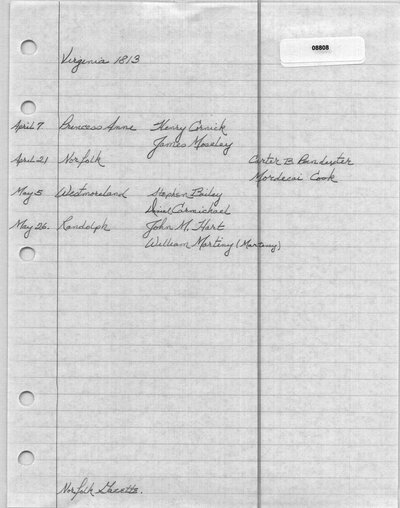 08808
Virginia 1813
April 7 Princess Anne Henry Cornick
James Moseley
April 21 Norfolk Carter B. Poindexter
Mordecai Cook
May 5 Westmoreland Stephen Bailey
Carmichael
May 26. Randolph John M. Hart
William Martiny (Marteny)
Norfolk Gazette.